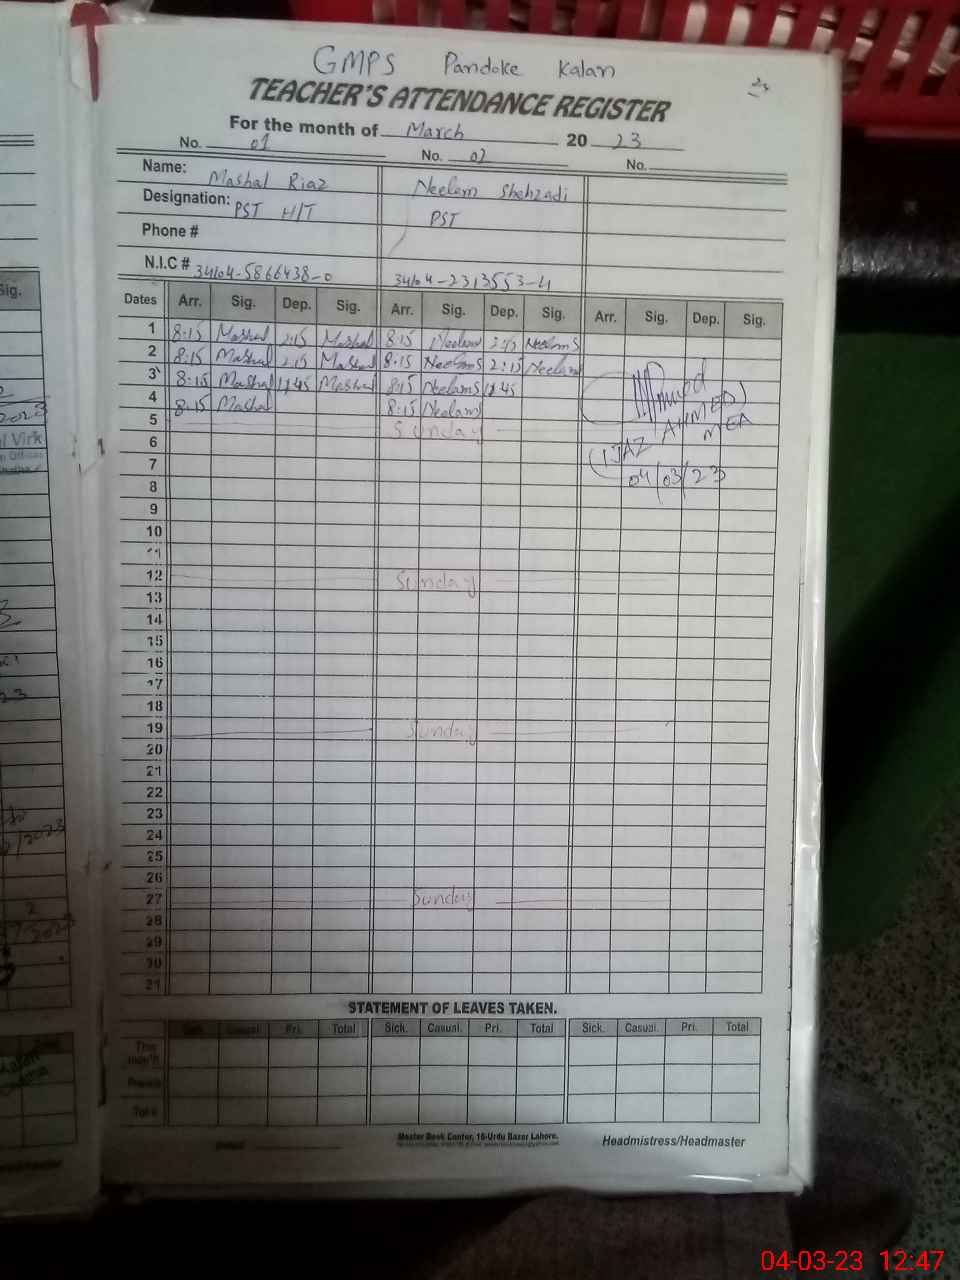 GMPS Pandoke Kalan
TEACHER'S ATTENDANCE REGISTER
For the month of March 20 23
No. 01 No. 02 No.
Name: Mashal Riaz Neelam Shehzadi
Designation: PST H/T PST
Phone #
N.I.C # 34604-5866438-0 34604-2313553-4
Dates Arr. Sig. Dep. Sig. Arr. Sig. Dep. Sig. Arr. Sig. Dep. Sig.
1 8:15 Mashal 2:15 Mashal 8:15 Neelam 2:15 NeelamS
2 8:15 Mashal 2:15 Mashal 8:15 NeelamS 2:15 Neelam
3 8:15 Mashal 11:45 Mashal 8:15 NeelamS 11:45
4 8:15 Mashal 8:15 Neelam
5 Sunday
6
7
8
9
10
11
12 Sunday
13
14
15
16
17
18
19 Sunday
20
21
22
23
24
25
26
27 Sunday
28
29
30
31
(IJAZ AHMED)
MEA
04/03/23
STATEMENT OF LEAVES TAKEN.
Sick. Casual. Pri. Total Sick. Casual. Pri. Total Sick. Casual. Pri. Total
This month
Total
Master Book Center, 16-Urdu Bazar Lahore.
Headmistress/Headmaster
Sig.
04-03-23 12:47